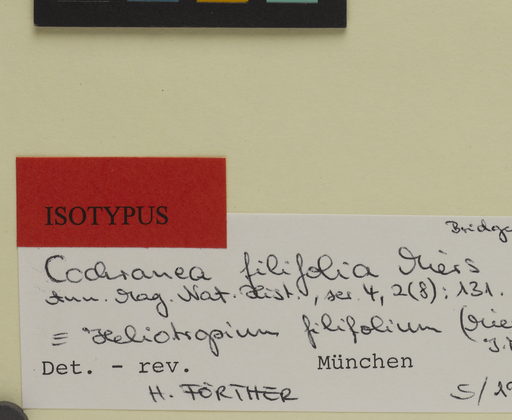 ISOTYPUS
Cochranea filifolia Miers
Ann. Mag. Nat. Hist., ser. 4, 2(8): 131.
≡ Heliotropium filifolium (Mie
Det. - rev. München
H. FÖRTHER 5/19